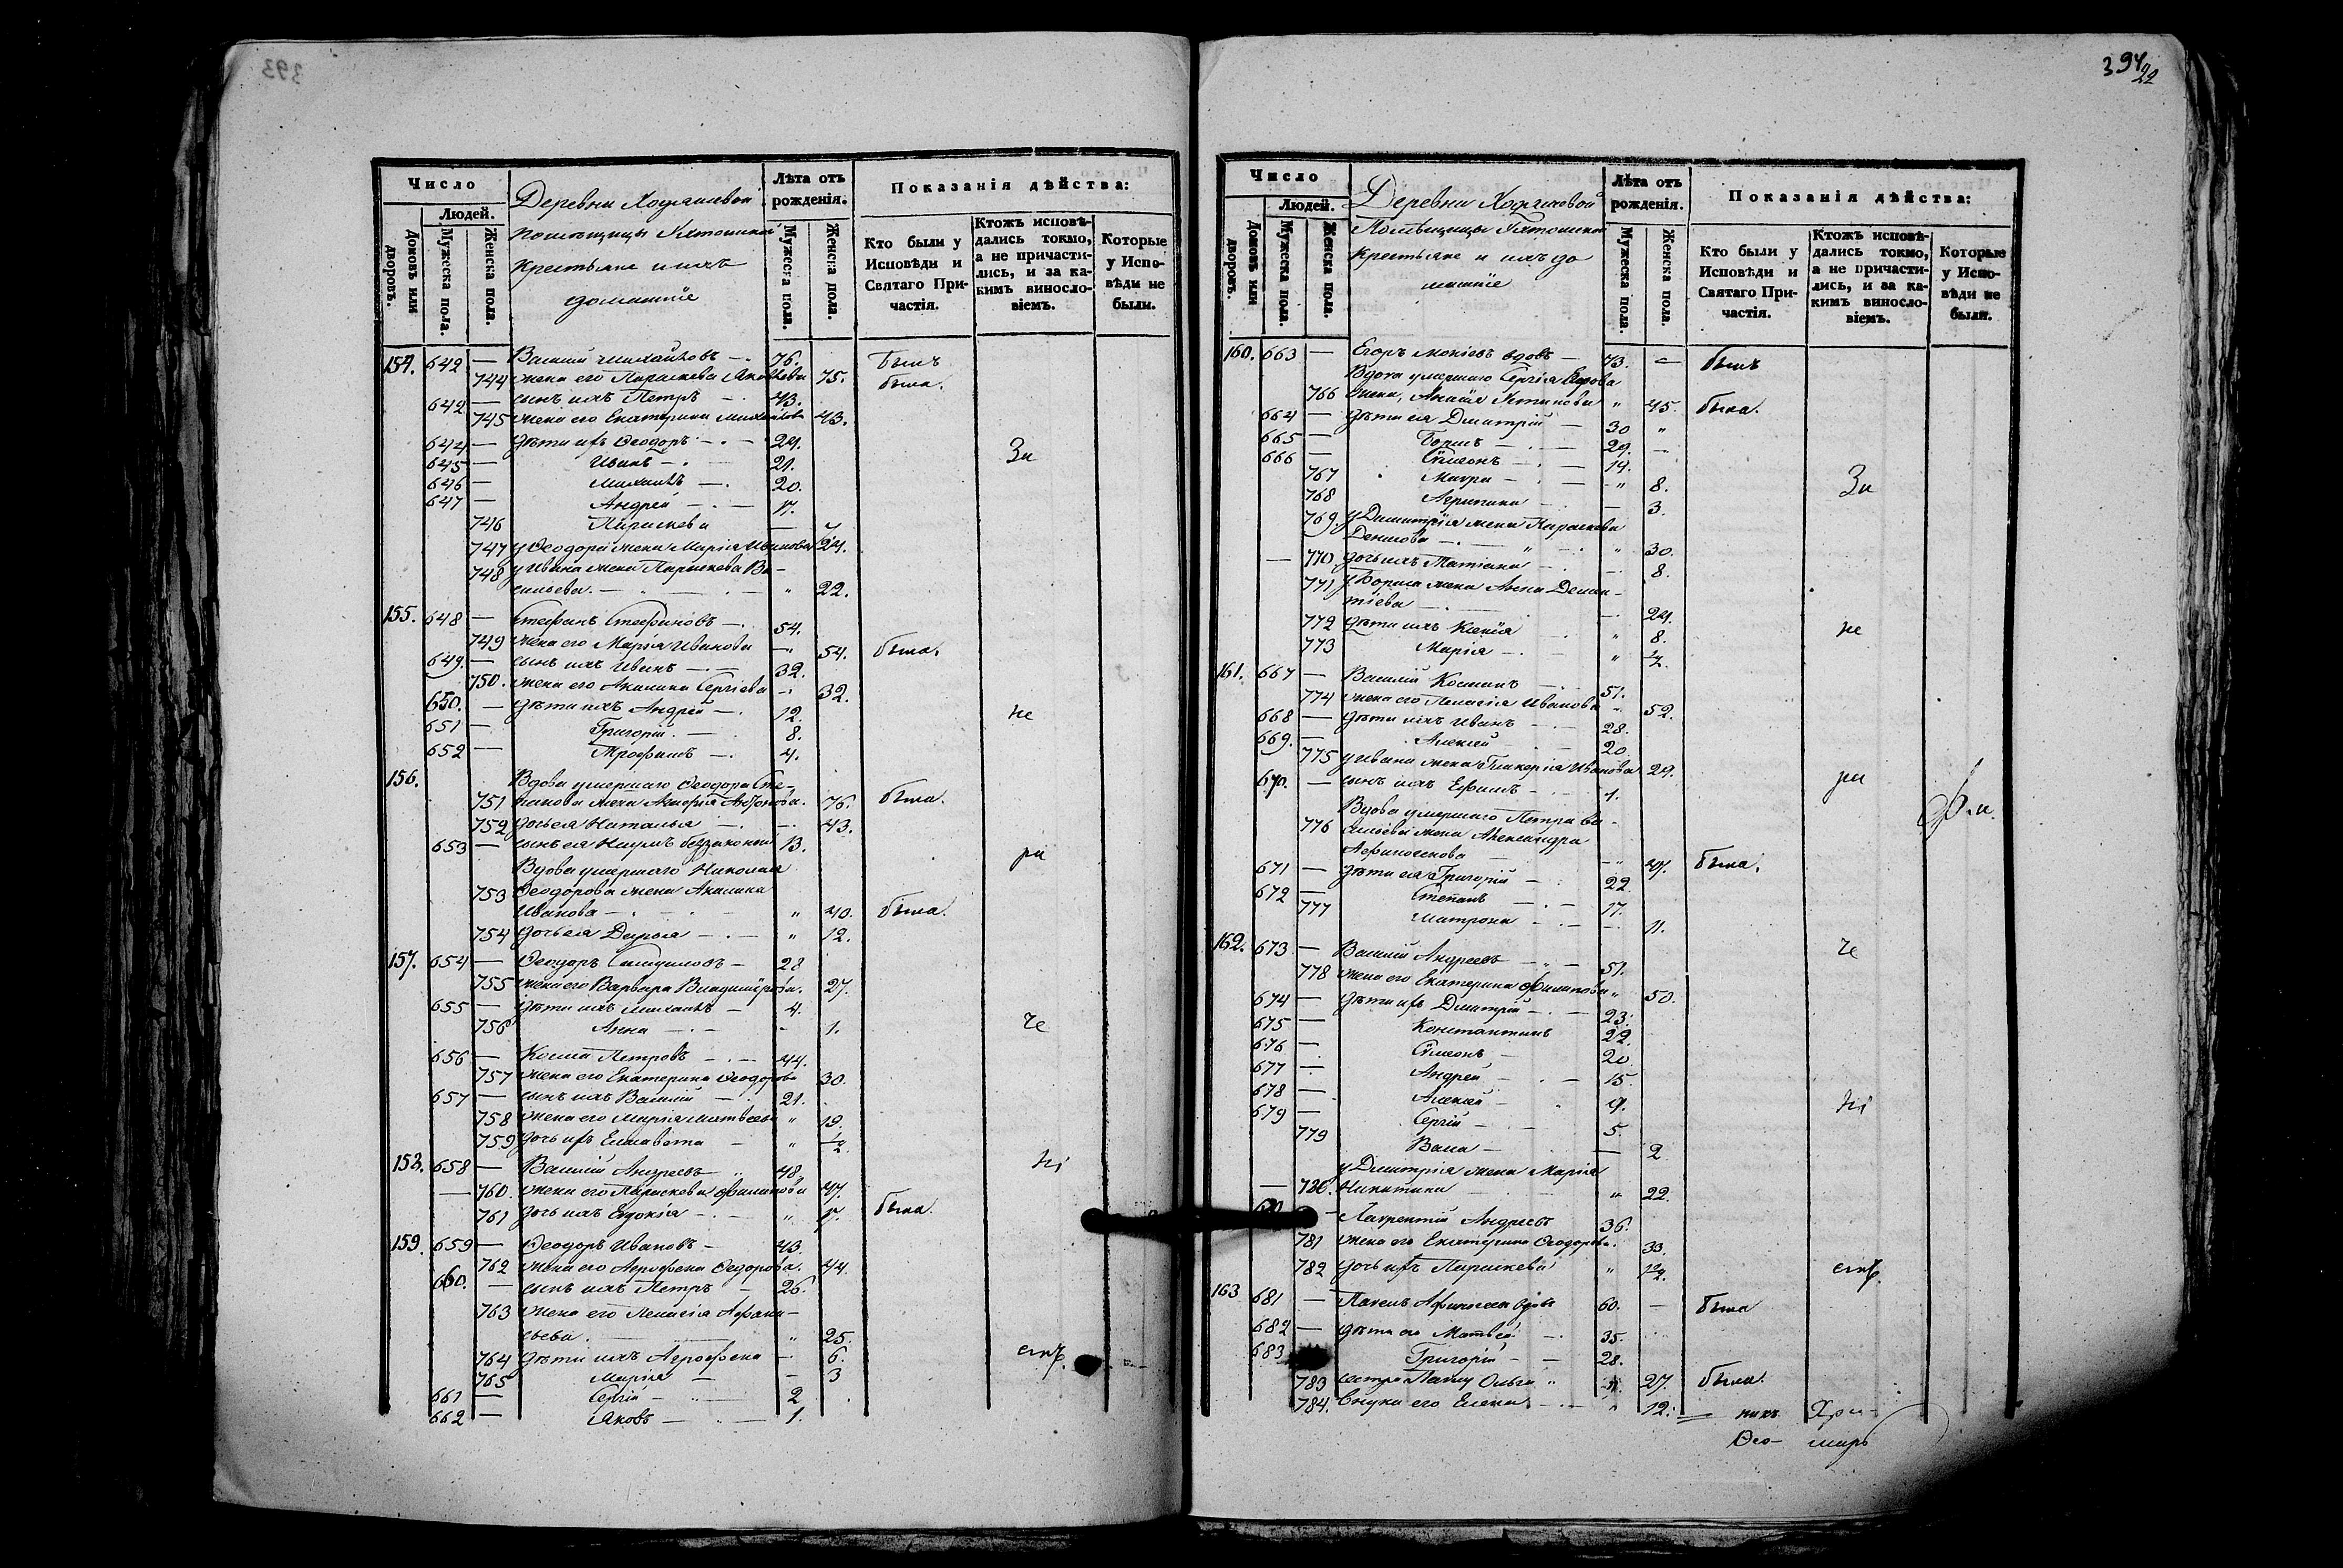 393
Число
Людей.
Домовъ или дворовъ.
Мужеска пола.
Женска пола.
Деревни
помѣщицы
Крестьяне и ихъ
домашніе
Лѣта отъ рожденія.
Мужеска пола.
Женска пола.
Показанія дѣйства:
Кто были у Исповѣди и Святаго Причастія.
Ктожъ исповѣдались токмо, а не причастились, и за какимъ винословіемъ.
Которые у Исповѣди не были.
154. 642 — Василій Михайловъ — 76. былъ
744 жена его Параскева Яковлева 75. была.
642 — сынъ ихъ Петръ — 43.
745 жена его Екатерина Михайлова 43.
644 — дѣти ихъ Ѳеодоръ — 24.
645 — Иванъ — 21. За
646 — Михаилъ — 20.
647 — Андрей — 17.
746 Параскева —
747 у Ѳеодора жена Марія Иванова 24.
748 у Ивана жена Параскева Ва-
сильева. — " 22.
155. 648 — Стефанъ Стефановъ — 54.
749 жена его Марія Иванова — 54. была.
649. — сынъ ихъ Иванъ — 32.
750. жена его Акилина Сергіева — 32.
650. — дѣти ихъ Андрей — 12. не
651 — Григорій. — 8.
652 — Трофимъ — 4.
156. Вдова умершаго Ѳеодора Сте-
751 панова жена 76. была.
752 дочь ея Наталья — 43.
653 — сынъ ея Наумъ беззаконный 13. ра
Вдова умершаго Николая
753 Ѳеодорова жена Акилина
Иванова — " 40. была.
754 дочь ея Дарья — " 12.
157. 654 — Ѳеодоръ — 28
755 жена его Варвара Владимірова. 27.
655 — дѣти ихъ Михаилъ — 4.
756 Анна — 1. че
656 — Косма Петровъ — 44.
757 жена его Екатерина Ѳеодорова 30.
657 — сынъ ихъ Василій — 21.
758 жена его Марія Матвеева " 19.
759 дочь ихъ Елисавета — " 1/2
158. 658 — Василій Андреевъ — 48. ні
— 760. жена его Параскева Филипова 47.
761 дочь ихъ Евдокія — " была.
159. 659 — Ѳеодоръ Ивановъ — 43.
762 жена его Агрофена Ѳедорова. 44.
660. — сынъ ихъ Петръ — 26.
763 жена его Пелагія Афана-
сьева. — " 25.
764 дѣти ихъ Агрофена — 6. емъ
765 Марія — 3
661 — Сергій — 2
662 — Яковъ — 1.
394
22
Число
Людей.
Домовъ или дворовъ.
Мужеска пола.
Женска пола.
Деревни
Помѣщицы
Крестьяне и ихъ до
машніе
Лѣта отъ рожденія.
Мужеска пола.
Женска пола.
Показанія дѣйства:
Кто были у Исповѣди и Святаго Причастія.
Ктожъ исповѣдались токмо, а не причастились, и за какимъ винословіемъ.
Которые у Исповѣди не были.
160. 663 — Егоръ вдовъ — 73. — былъ
Вдова умершаго Сергія Егорова
766 жена, " 45. была.
664 — дѣти ея Димитрій — 30 "
665 — Борисъ — 29. —
666 — Сѵмеонъ — 14.
767 Мавра — " 8. За
768 Агрипина — 3.
769. у Димитрія жена Параскева
Денисова — " 30.
— 770. дочь ихъ Татіана — 8.
771 у Бориса жена Анна Демен-
тіева — 24.
772 дѣти ихъ Ксенія — " 8. не
773 Марія — " 1/2.
161. 667 — Василій Косминъ — 51.
774 жена его Пелагія Иванова — 52.
668 — дѣти ихъ Иванъ — 28.
669. — Алексій — 20
775 у Ивана жена Гликерія Иванова 29.
670. — сынъ ихъ Ефимъ — 1. ра
Вдова умершаго Петра Ва-
776 сильева жена Александра
— " 47. была.
671 — дѣти ея Григорій — 22.
672 — Степанъ — 17.
777 Матрона — 11.
162. 673 — Василій Андреевъ — 51. че
778 жена его Екатерина Филипова " 50.
674 — дѣти ихъ Димитрій — 23.
675 — Константинъ 22.
676 — Сѵмеонъ — 20
677 — Андрей — 15.
678 — Алексій — 9.
679 — Сергій — 5. ні
779 Васса — 2
у Димитрія жена Марія
— 780. Никитина — " 22.
680 — Лаврентій Андреевъ 36.
781 жена его Екатерина Ѳеодорова. 33.
782 дочь ихъ Параскева " 1/2. емъ
163 681 — Павелъ вдовъ 60. — была
682 — дѣти его Матвей — 35.
683 Григорій — 28.
783 сестра Ольга " 27. была.
784. внука его Елена — " 12.